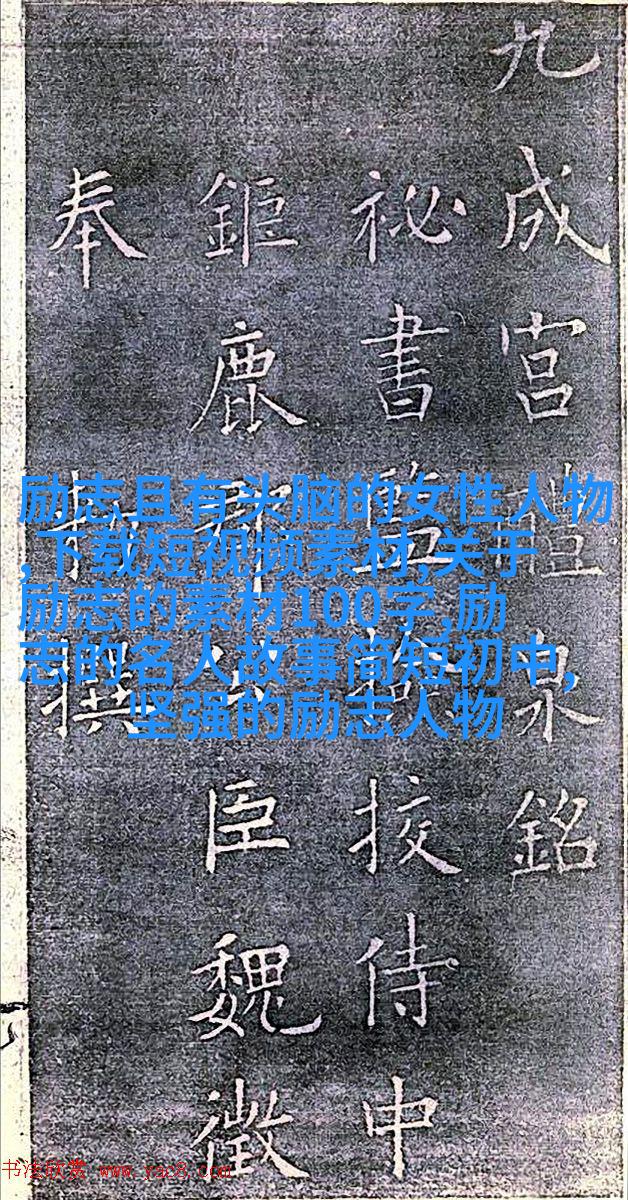 九成宮醴泉銘
祕書監撿挍侍中
鉅鹿郡公臣魏徵
奉勑撰
励志且有头脑的女性人物
,下载短视频素材,关于
励志的素材100字,励
志的名人故事简短初中,
坚强的励志人物
书法欣赏 www.yac8.com